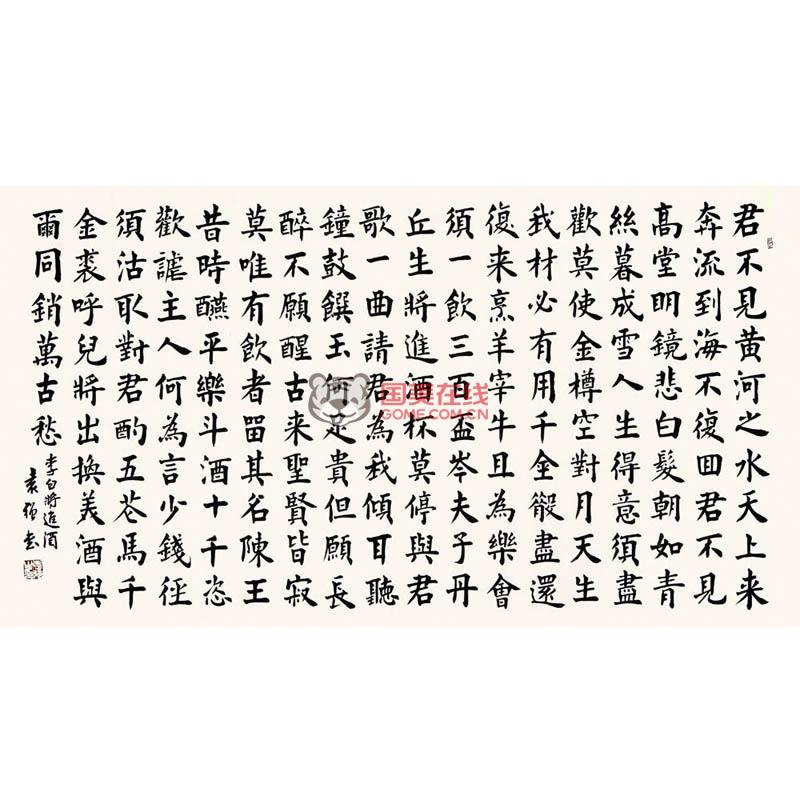 君不見黄河之水天上来
奔流到海不復囬君不見
高堂明鏡悲白髮朝如青
絲暮成雪人生得意須盡
歡莫使金樽空對月天生
我材必有用千金散盡還
復来烹羊宰牛且為樂會
須一飲三百盃岑夫子丹
丘生將進酒杯莫停與君
歌一曲請君為我傾耳聽
鐘鼓饌玉何足貴但願長
醉不願醒古来聖賢皆寂
莫唯有飲者留其名陳王
昔時醼平樂斗酒十千恣
歡謔主人何為言少錢徑
須沽取對君酌五花馬千
金裘呼兒將出換美酒與
爾同銷萬古愁
李白將進酒
袁強書
国美在线
GOME.COM.CN